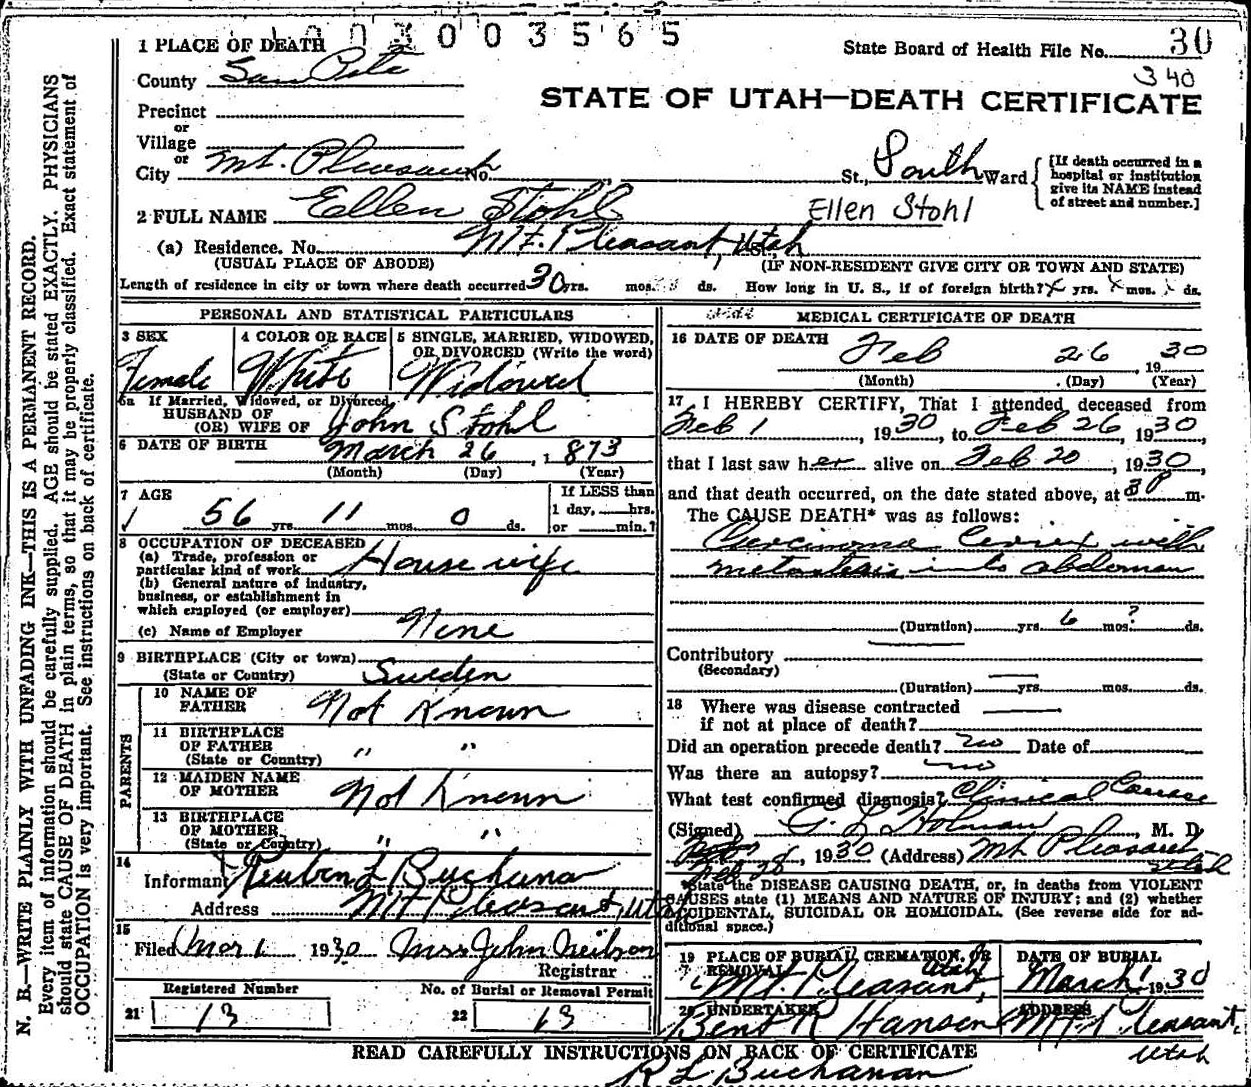 1 PLACE OF DEATH
3 0 0 3 5 6 5
State Board of Health File No. 30
340
County San Pete
STATE OF UTAH—DEATH CERTIFICATE
Precinct
or
Village
or
City Mt. Pleasant No. St., South Ward
[If death occurred in a
hospital or institution
give its NAME instead
of street and number.]
2 FULL NAME Ellen Stohl
Ellen Stohl
(a) Residence. No. Mt. Pleasant, Utah
(USUAL PLACE OF ABODE) (IF NON-RESIDENT GIVE CITY OR TOWN AND STATE)
Length of residence in city or town where death occurred 30 yrs. mos. ds. How long in U. S., if of foreign birth? x yrs. x mos. x ds.
PERSONAL AND STATISTICAL PARTICULARS
3 SEX
Female
4 COLOR OR RACE
White
5 SINGLE, MARRIED, WIDOWED,
OR DIVORCED (Write the word)
Widowed
5a If Married, Widowed, or Divorced
HUSBAND OF
(OR) WIFE OF John Stohl
6 DATE OF BIRTH March 26, 1873
(Month) (Day) (Year)
7 AGE
56 yrs. 11 mos. 0 ds.
If LESS than
1 day, hrs.
or min.?
8 OCCUPATION OF DECEASED
(a) Trade, profession or
particular kind of work House wife
(b) General nature of industry,
business, or establishment in
which employed (or employer)
(c) Name of Employer None
9 BIRTHPLACE (City or town)
(State or Country) Sweden
PARENTS
10 NAME OF
FATHER Not Known
11 BIRTHPLACE
OF FATHER
(State or Country) " "
12 MAIDEN NAME
OF MOTHER Not Known
13 BIRTHPLACE
OF MOTHER
(State or Country) " "
14
Informant Reuben L Buchanan
Address Mt Pleasant, Utah
15
Filed Mar 1 1930 Mrs John Neilson
Registrar
Registered Number
21 13
No. of Burial or Removal Permit
22 13
MEDICAL CERTIFICATE OF DEATH
16 DATE OF DEATH
Feb 26, 1930
(Month) (Day) (Year)
17 I HEREBY CERTIFY, That I attended deceased from
Feb 1, 1930, to Feb 26, 1930,
that I last saw her alive on Feb 20, 1930,
and that death occurred, on the date stated above, at 3P m.
The CAUSE DEATH* was as follows:
Carcinoma Cervix with
metastasis into abdomen
(Duration) yrs. 6 mos.? ds.
Contributory
(Secondary)
(Duration) yrs. mos. ds.
18 Where was disease contracted
if not at place of death?
Did an operation precede death? no Date of
Was there an autopsy? no
What test confirmed diagnosis? Clinical Course
(Signed) C. L. Holman, M. D.
Feb 28, 1930 (Address) Mt Pleasant
Utah
*State the DISEASE CAUSING DEATH, or, in deaths from VIOLENT
CAUSES state (1) MEANS AND NATURE OF INJURY; and (2) whether
ACCIDENTAL, SUICIDAL OR HOMICIDAL. (See reverse side for ad-
ditional space.)
19 PLACE OF BURIAL, CREMATION, OR
REMOVAL
Mt Pleasant, Utah
DATE OF BURIAL
March 1 1930
20 UNDERTAKER
Bent R Hansen
ADDRESS
Mt Pleasant,
Utah
READ CAREFULLY INSTRUCTIONS ON BACK OF CERTIFICATE
R L Buchanan
N. B.—WRITE PLAINLY WITH UNFADING INK—THIS IS A PERMANENT RECORD.
Every item of information should be carefully supplied. AGE should be stated EXACTLY. PHYSICIANS
should state CAUSE OF DEATH in plain terms, so that it may be properly classified. Exact statement of
OCCUPATION is very important. See instructions on back of certificate.